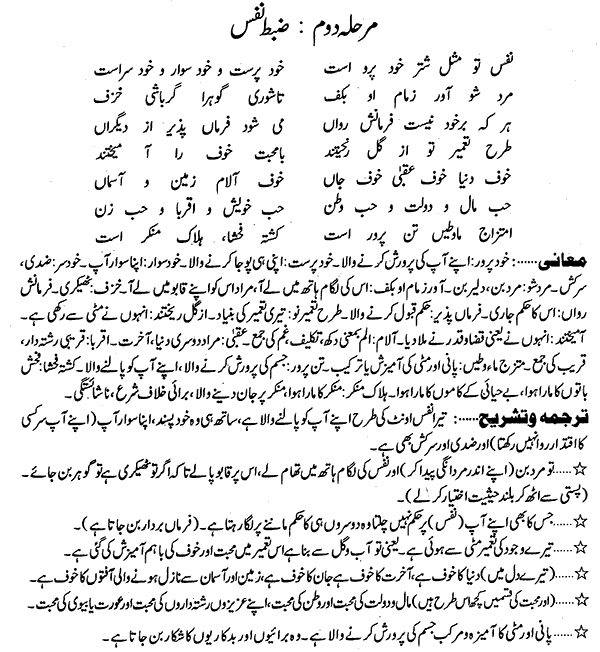 مرحلہ دوم : ضبط نفس
نفس تو مثل شتر خود پرو است خود پرست و خود سوار و خود سراست
مرد شو آور زمام او بکف تاشوری گوہرا گرباشی خزف
ہر کہ برخود نیست فرمانش رواں می شود فرماں پذیر از دیگراں
طرح تعمیر تو از گل ریختند بامحبت خوف را آ میختند
خوف دنیا خوف عقبیٰ خوف جاں خوف آلام زمین و آسماں
حب مال و دولت و حب وطن حب خویش و اقربا و حب زن
امتزاج ماوطیں تن پرور است کشتہ فحشا، ہلاک منکر است
معانی......: خود پرور: اپنے آپ کی پرورش کرنے والا۔ خود پرست: اپنی ہی پوجا کرنے والا۔ خودسوار: اپنا سوار آپ۔ خودسر: ضدی،
سرکش۔ مردشو: مرد بن، دلیر بن۔ آور زمام او بکف: اس کی لگام ہاتھ میں لے آ، مراد اس کو اپنے قابو میں لے آ۔ خزف: ٹھیکری۔ فرمانش
رواں: اس کا حکم جاری۔ فرماں پذیر: حکم قبول کرنے والا۔ طرح تعمیر تو: تیری تعمیر کی بنیاد۔ ازگل ریختند: انہوں نے مٹی سے رکھی ہے۔
آمیختند: انہوں نے یعنی قضا و قدر نے ملا دیا۔ آلام: الم بمعنی دکھ، تکلیف، غم کی جمع۔ عقبیٰ: مراد دوسری دنیا، آخرت۔ اقربا: قریبی رشتہ دار،
قریب کی جمع۔ متزاج ماءوطیں: پانی اور مٹی کی آمیزش یا ترکیب۔ تن پرور: جسم کی پرورش کرنے والا، اپنے آپ کو پالنے والا۔ کشتۂ فحشا: فحش
باتوں کا مارا ہوا، بے حیائی کے کاموں کا مارا ہوا۔ ہلاک منکر: منکر کا مارا ہوا، منکر پر جان دینے والا، برائی خلاف شرع، ناشائستگی۔
ترجمہ وتشریح......: تیرا نفس اونٹ کی طرح اپنے آپ کو پالنے والا ہے، ساتھ ہی وہ خود پسند، اپنا سوار آپ (اپنے آپ پر کسی
کا اقتدار روا نہیں رکھتا) اور ضدی اور سرکش بھی ہے۔
☆......تو مرد بن (اپنے اندر مردانگی پیدا کر) اور نفس کی لگام ہاتھ میں تھام لے، اس پر قابو پا لے تاکہ اگر تو ٹھیکری ہے تو گوہر بن جائے۔
(پستی سے اٹھ کر بلند حیثیت اختیار کر لے)۔
☆......جس کا بھی اپنے آپ (نفس) پر حکم نہیں چلتا وہ دوسروں ہی کا حکم ماننے پر لگا رہتا ہے۔ (فرماں بردار بن جاتا ہے)۔
☆......تیرے وجود کی تعمیر مٹی سے ہوئی ہے۔ یعنی تو آب و گل سے بنا ہے اس تعمیر میں محبت اور خوف کی باہم آمیزش کی گئی ہے۔
☆......(تیرے دل میں) دنیا کا خوف ہے، آخرت کا خوف ہے جان کا خوف ہے، زمین اور آسمان سے نازل ہونے والی آفتوں کا خوف ہے۔
☆......(اور محبت کی قسمیں کچھ اس طرح ہیں) مال و دولت کی محبت اور وطن کی محبت، اپنے عزیزوں رشتہ داروں کی محبت اور عورت یا بیوی کی محبت۔
☆......پانی اور مٹی کا آمیزہ و مرکب جسم کی پرورش کرنے والا ہے۔ وہ برائیوں اور بدکاریوں کا شکار بن جاتا ہے۔